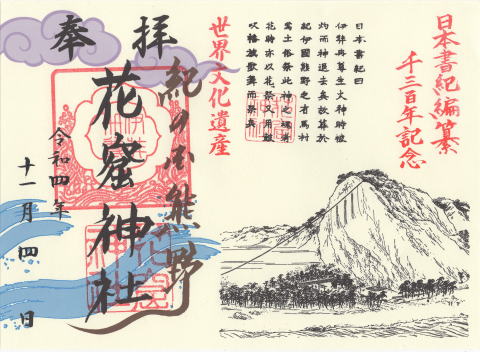 日本書紀編纂
千三百年記念
日本書紀曰
伊弉冉尊生火神時被
灼而神退去矣故葬於
紀伊國熊野之有馬村
焉土俗祭此神之魂者
花時亦以花祭又用鼓
吹幡旗歌舞而祭矣
世界文化遺産
奉拝
紀の国熊野
花窟神社
令和四年
十一月四日